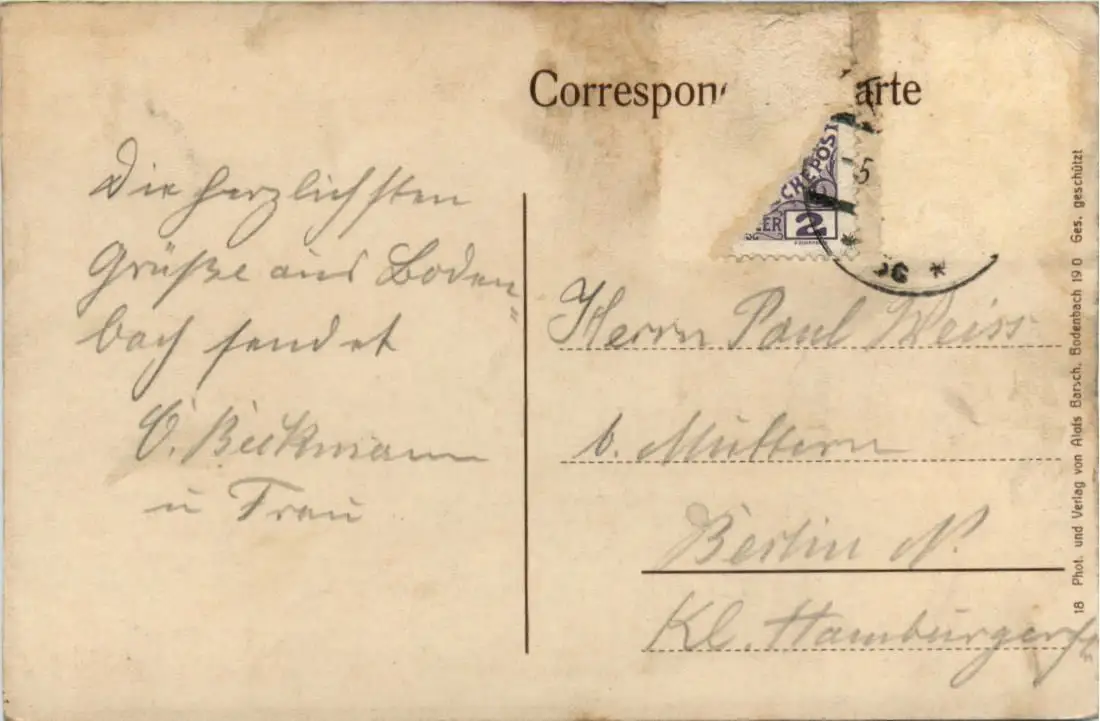 Correspon arte
CHEPOST
ER 2
5
*
Die herzlichsten
Grüße aus Boden
bach sendet
O. Beckmann
u Frau
Herrn Paul Weiss
b. Müttern
Berlin N.
Kl. Hamburgerstr
18 Phot. und Verlag von Alois Barsch, Bodenbach 19 0 Ges. geschützt